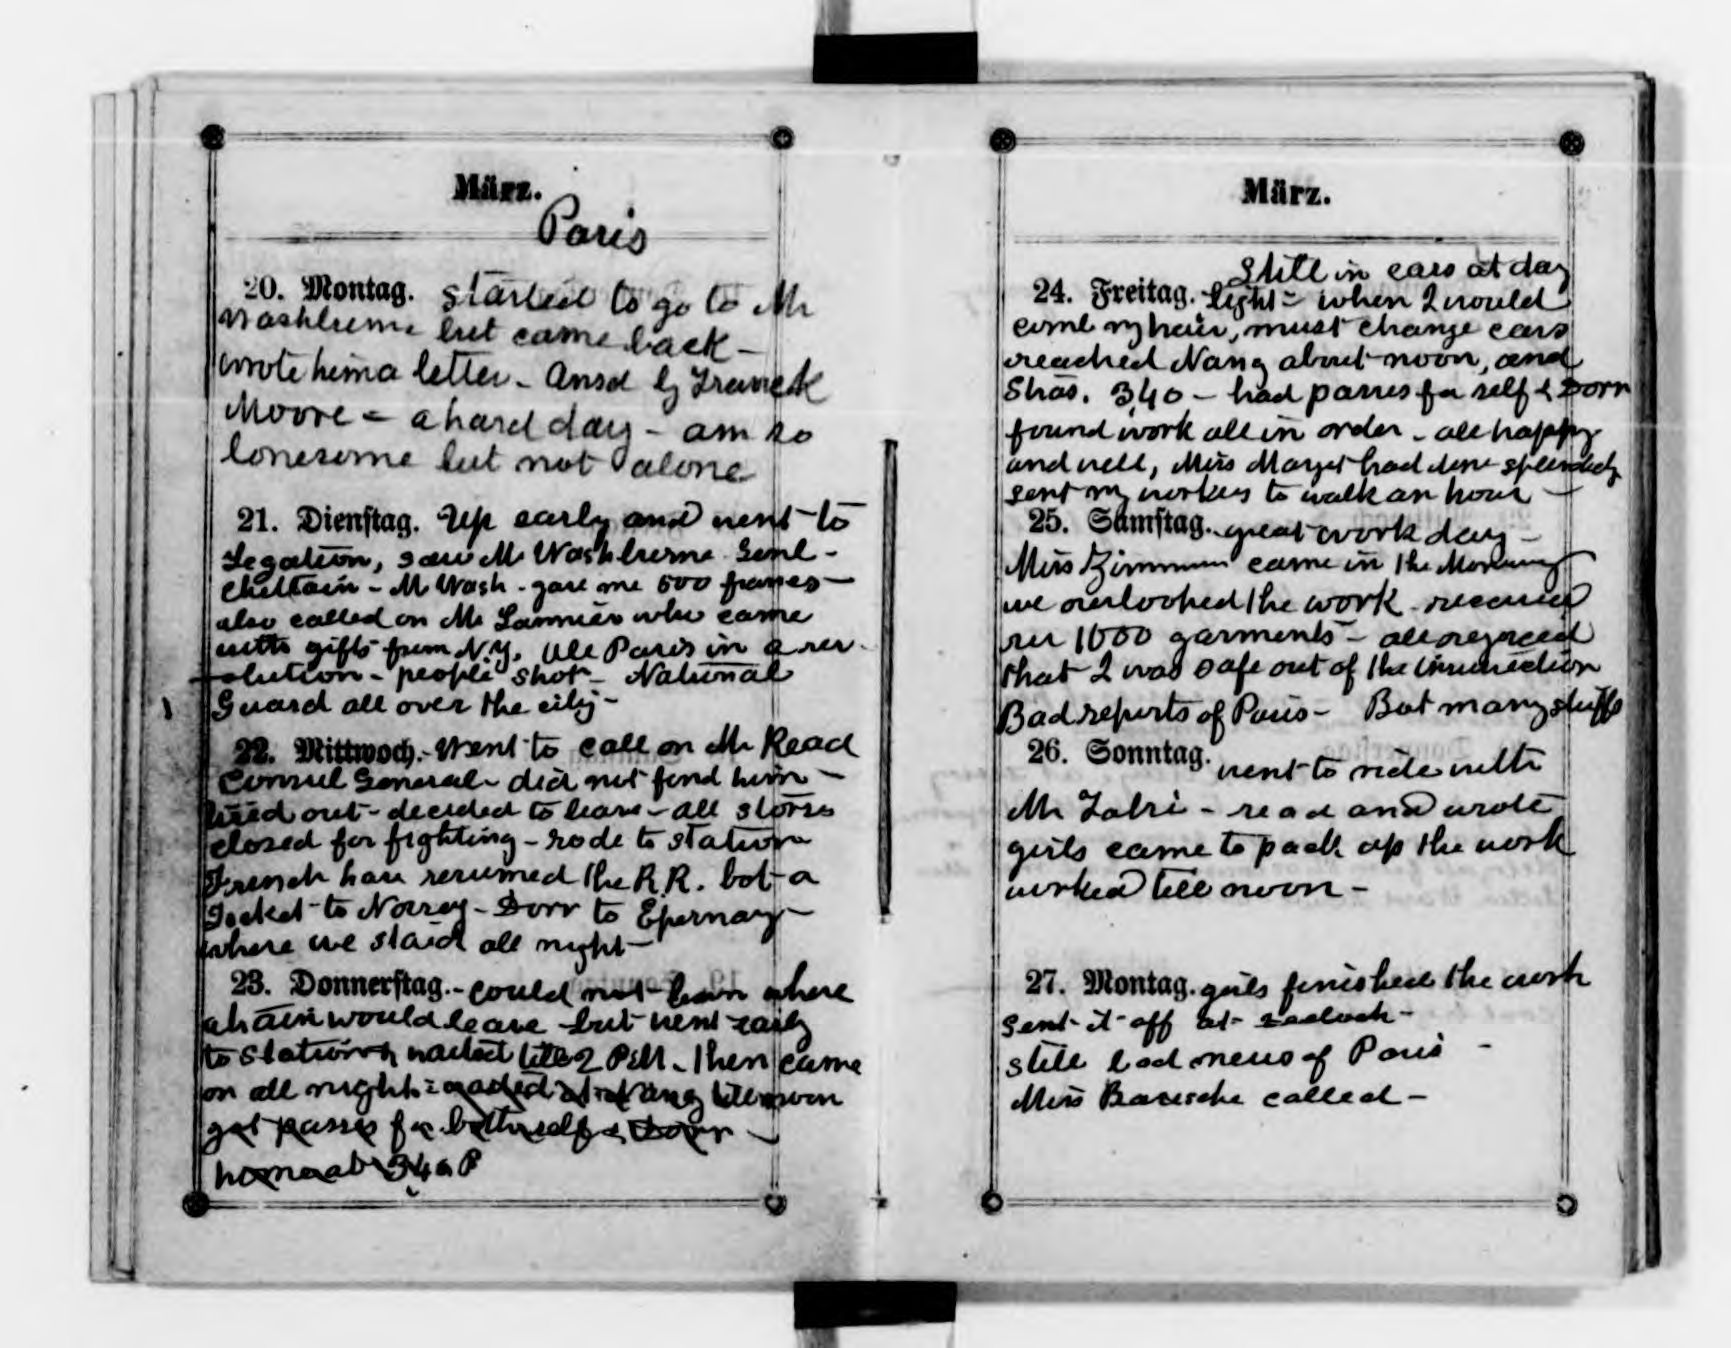 März.
Paris
20. Montag. Started to go to Mr
Washburne but came back -
wrote him a letter - Ansd by Franck
Moore = a hard day - am so
lonesome but not alone
21. Dienstag. Up early and went to
Legation, saw Mr Washburne Genl -
- Mr Wash. gave me 500 francs -
also called on Mr who came
with gifts from N.Y. All Paris in a rev
olution - people shot - National
Guard all over the city -
22. Mittwoch. - Went to call on Mr Read
Consul General - did not find him -
tired out - decided to leave - all stores
closed for fighting - rode to station
French have resumed the R R. bot a
ticket to - Dorr to Epernay -
where we staid all night -
23. Donnerstag. - could not learn where
a train would leave but went early
to station & waited till 2 P.M. - then came
on all night = waited at Nancy till noon
got passes for both self & Dorr -
home at 340 P
März.
Still in cars at day
24. Freitag. light = when I would
comb my hair, must change cars
reached Nancy about noon, and
Stras. 3,40 - had passes for self & Dorr
found work all in order - all happy
and well, Miss Margot had done splendidly
sent my workers to walk an hour -
25. Samstag. great work day -
Miss Zimmerman came in the Morning
we overlooked the work - received
over 1000 garments - all rejoiced
that I was safe out of the insurrection
Bad reports of Paris - Bot many stuffs
26. Sonntag. went to ride with
Mr - read and wrote
girls came to pack up the work
worked till noon -
27. Montag. girls finished the work
sent it off at 2 oclock -
still bad news of Paris -
Miss called -